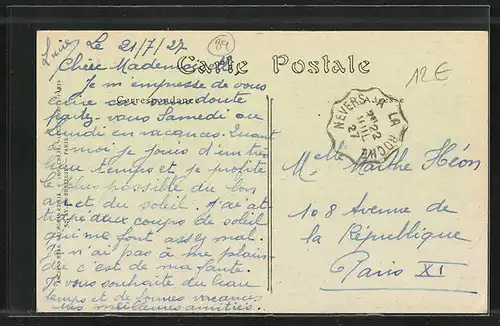 Le 21/7/27
89
Chère Mademoiselle
Carte Postale
12€
Je m'empresse de vous
écrire car sans doute
Correspondance
Adresse
partez-vous Samedi ou
Lundi en vacances. Quant
à moi je jouis d'un très
beau temps et je profite
le plus possible du bon
air et du soleil. J'ai at-
trapé deux coups de soleil
qui me font assez mal.
Je n'ai pas à me plain-
dre c'est de ma faute.
Je vous souhaite du beau
temps et de bonnes vacances
mes meilleures amitiés.
NEVERS A LA ROCHE
22
JUIL
27
Melle Marthe Héon
108 Avenue de
la République
Paris XI